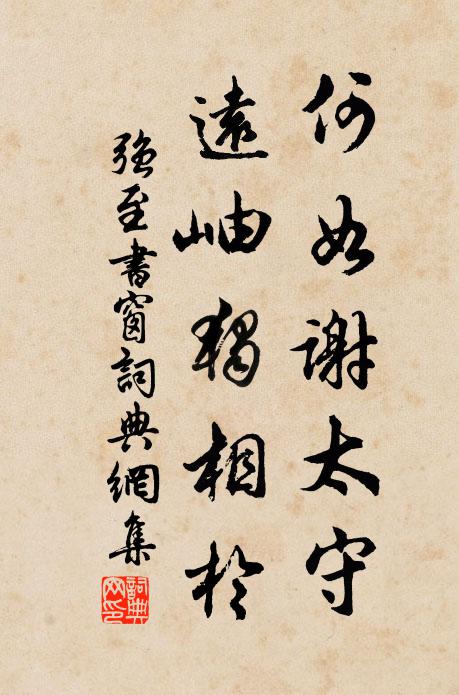 何如謝太守
遠岫獨相於
強至書窗詞典網集
詞典網印